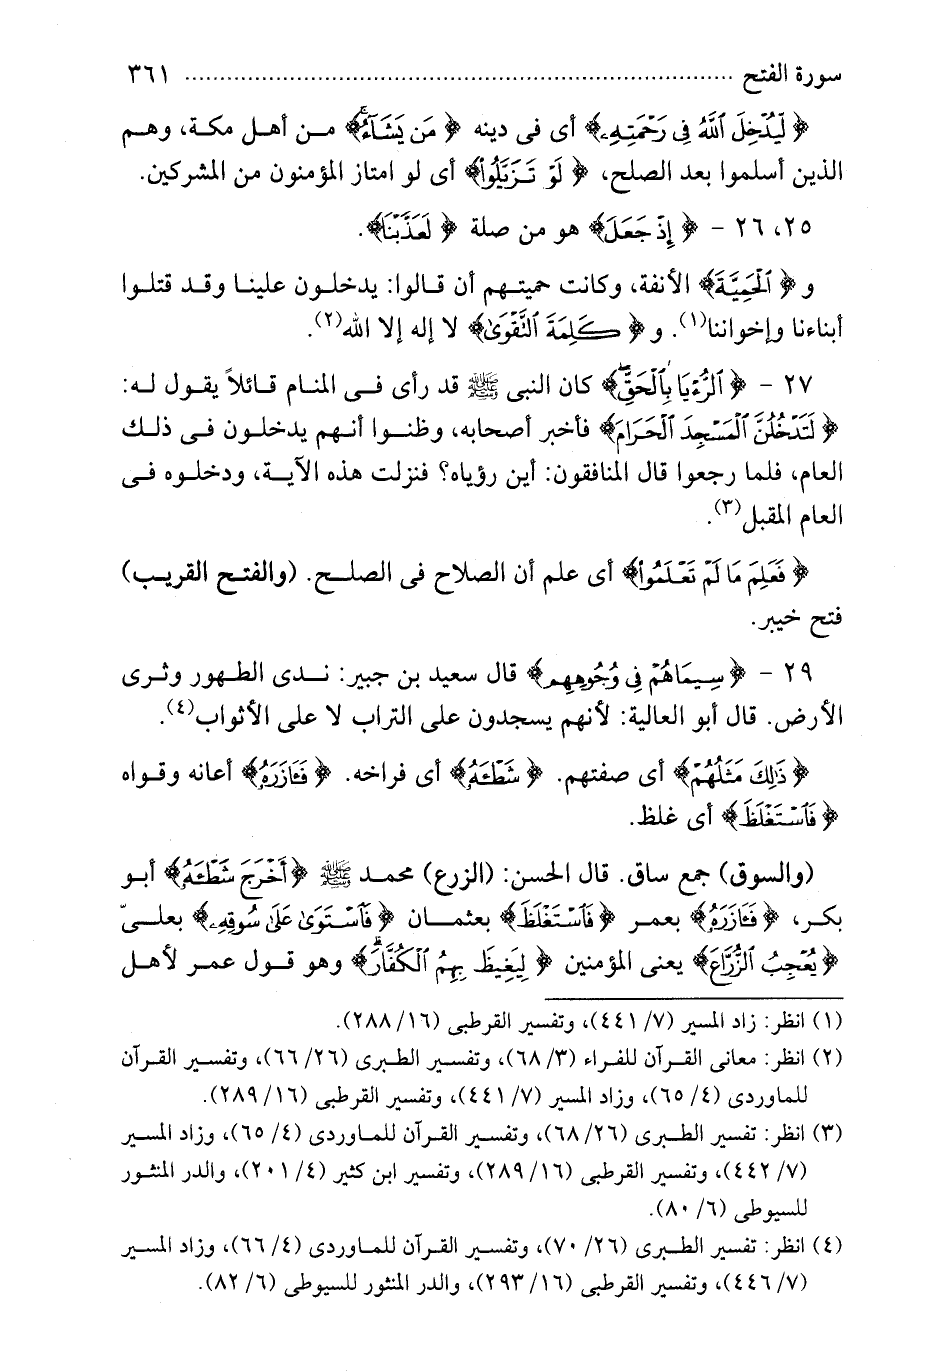 سورة الفتح ........................................................................... ٣٦١
﴿ لِّيُدْخِلَ ٱللَّهُ فِى رَحْمَتِهِۦ﴾ أى فى دينه ﴿ مَن يَشَآءُۚ﴾ مـن أهـل مكـة، وهـم
الذين أسلموا بعد الصلح، ﴿ لَوْ تَـزَيَّلُوا۟﴾ أى لو امتاز المؤمنون من المشركين.
٢٥، ٢٦ – ﴿ إِذْ جَعَلَ﴾ هو من صلة ﴿ لَعَذَّبْنَا﴾.
و ﴿ ٱلْحَمِيَّةَ﴾ الأنفة، وكانت حميتـهم أن قـالوا: يدخلـون علينـا وقـد قتلـوا
أبناءنا وإخواننا(١). و ﴿ كَلِمَةَ ٱلتَّقْوَىٰ﴾ لا إله إلا الله(٢).
٢٧ – ﴿ ٱلرُّءْيَا بِٱلْحَقِّۖ﴾ كان النبى ﷺ قد رأى فـى المنـام قـائلاً يقـول لـه:
﴿ لَتَدْخُلُنَّ ٱلْمَسْجِدَ ٱلْحَرَامَ﴾ فأخبر أصحابه، وظنـوا أنـهم يدخلـون فـى ذلـك
العام، فلما رجعوا قال المنافقون: أين رؤياه؟ فنزلت هذه الآيـة، ودخلـوه فـى
العام المقبل(٣).
﴿ فَعَلِمَ مَا لَمْ تَعْلَمُوا۟﴾ أى علم أن الصلاح فى الصلـح. (والفتـح القريـب)
فتح خيبر.
٢٩ – ﴿ سِيمَاهُمْ فِى وُجُوهِهِم﴾ قال سعيد بن جبير: نـدى الطـهور وثـرى
الأرض. قال أبو العالية: لأنهم يسجدون على التراب لا على الأثواب(٤).
﴿ ذَٰلِكَ مَثَلُهُمْ﴾ أى صفتهم. ﴿ شَطْـَٔهُۥ﴾ أى فراخه. ﴿ فَـَٔازَرَهُۥ﴾ أعانه وقـواه
﴿ فَٱسْتَغْلَظَ﴾ أى غلظ.
(والسوق) جمع ساق. قال الحسن: (الزرع) محمـد ﷺ ﴿أَخْرَجَ شَطْـَٔهُۥ﴾ أبـو
بكر، ﴿ فَـَٔازَرَهُۥ﴾ بعمـر ﴿ فَٱسْتَغْلَظَ﴾ بعثمـان ﴿ فَٱسْتَوَىٰ عَلَىٰ سُوقِهِۦ﴾ بعلـىّ
﴿ يُعْجِبُ ٱلزُّرَّاعَ﴾ يعنى المؤمنين ﴿ لِيَغِيظَ بِهِمُ ٱلْكُفَّارَۗ﴾ وهو قـول عمـر لأهـل
(١) انظر: زاد المسير (٧/ ٤٤١)، وتفسير القرطبى (١٦/ ٢٨٨).
(٢) انظر: معانى القـرآن للفـراء (٣/ ٦٨)، وتفسـير الطـبرى (٢٦/ ٦٦)، وتفسـير القـرآن
للماوردى (٤/ ٦٥)، وزاد المسير (٧/ ٤٤١)، وتفسير القرطبى (١٦/ ٢٨٩).
(٣) انظر: تفسير الطـبرى (٢٦/ ٦٨)، وتفسـير القـرآن للمـاوردى (٤/ ٦٥)، وزاد المسـير
(٧/ ٤٤٢)، وتفسير القرطبى (١٦/ ٢٨٩)، وتفسير ابن كثير (٤/ ٢٠١)، والدر المنثـور
للسيوطى (٦/ ٨٠).
(٤) انظر: تفسير الطـبرى (٢٦/ ٧٠)، وتفسـير القـرآن للمـاوردى (٤/ ٦٦)، وزاد المسـير
(٧/ ٤٤٦)، وتفسير القرطبى (١٦/ ٢٩٣)، والدر المنثور للسيوطى (٦/ ٨٢).